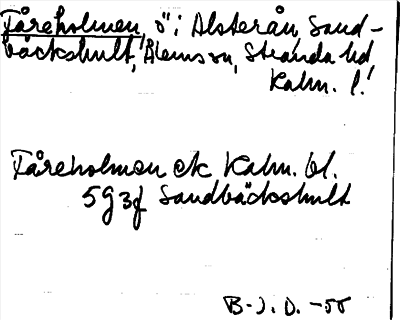 Fåreholmen, ö i Alsterån, Sand-
bäckshult, Ålems sn, Stranda hd
Kalm. l.
Fåreholmen ek Kalm. bl.
5g3g Sandbäckshult
B-J. D. -55